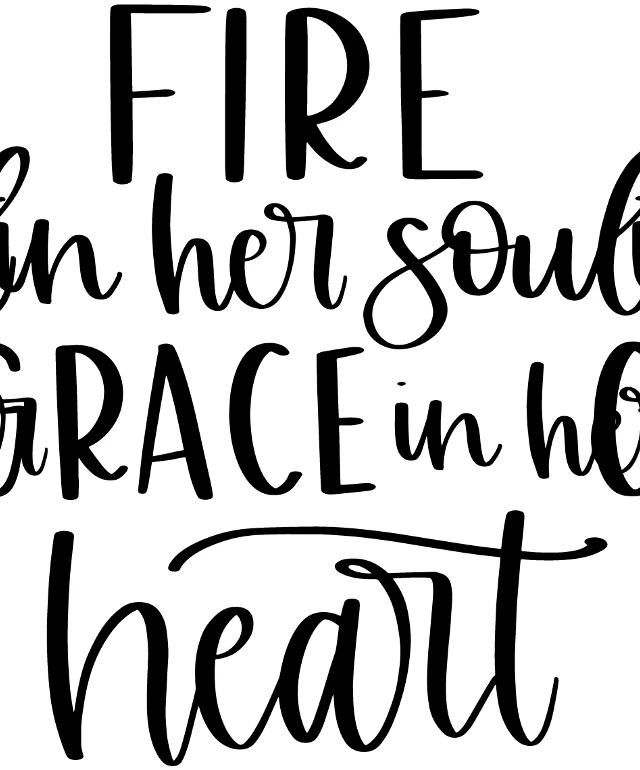 FIRE
in her soul
GRACE in her
heart